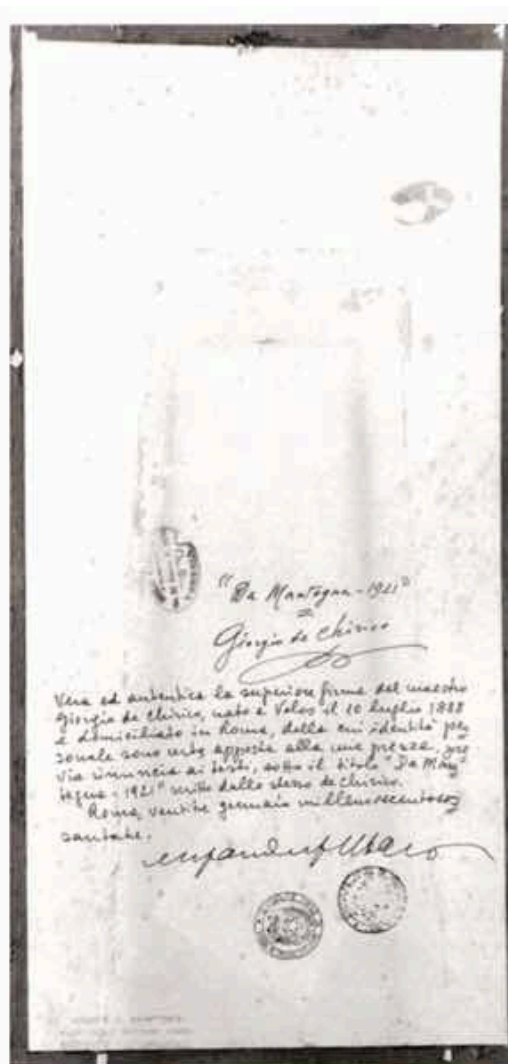 "Da Mantegna - 1921"
Giorgio de Chirico
Vera ed autentica la superiore firma del maestro
Giorgio de Chirico, nato a Volos il 10 luglio 1888
e domiciliato in Roma, della cui identità per
sonale sono certo apposta alla mia presenza, pre
via rinuncia ai testi, sotto il titolo "Da Man
tegna - 1921" scritto dallo stesso de Chirico.
Roma, gennaio
santatre.